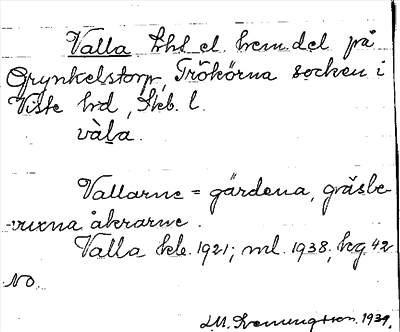 Valla khl el. hem.del på
Grynkelstorp, Trökörna socken i
Viste hrd, Skb. l.
vàla.
Vallarne = gärdena, gräsbe-
-vuxna åkrarne.
Valla kb. 1921; ml. 1938; kg 42
No.
1939.